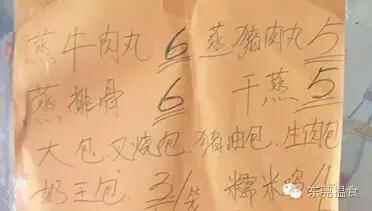 蒸牛肉丸 6 蒸猪肉丸 5
蒸排骨 6 干蒸 5
大包叉烧包、猪油包、生肉包
奶王包 3/ 糯米鸡
东莞温食